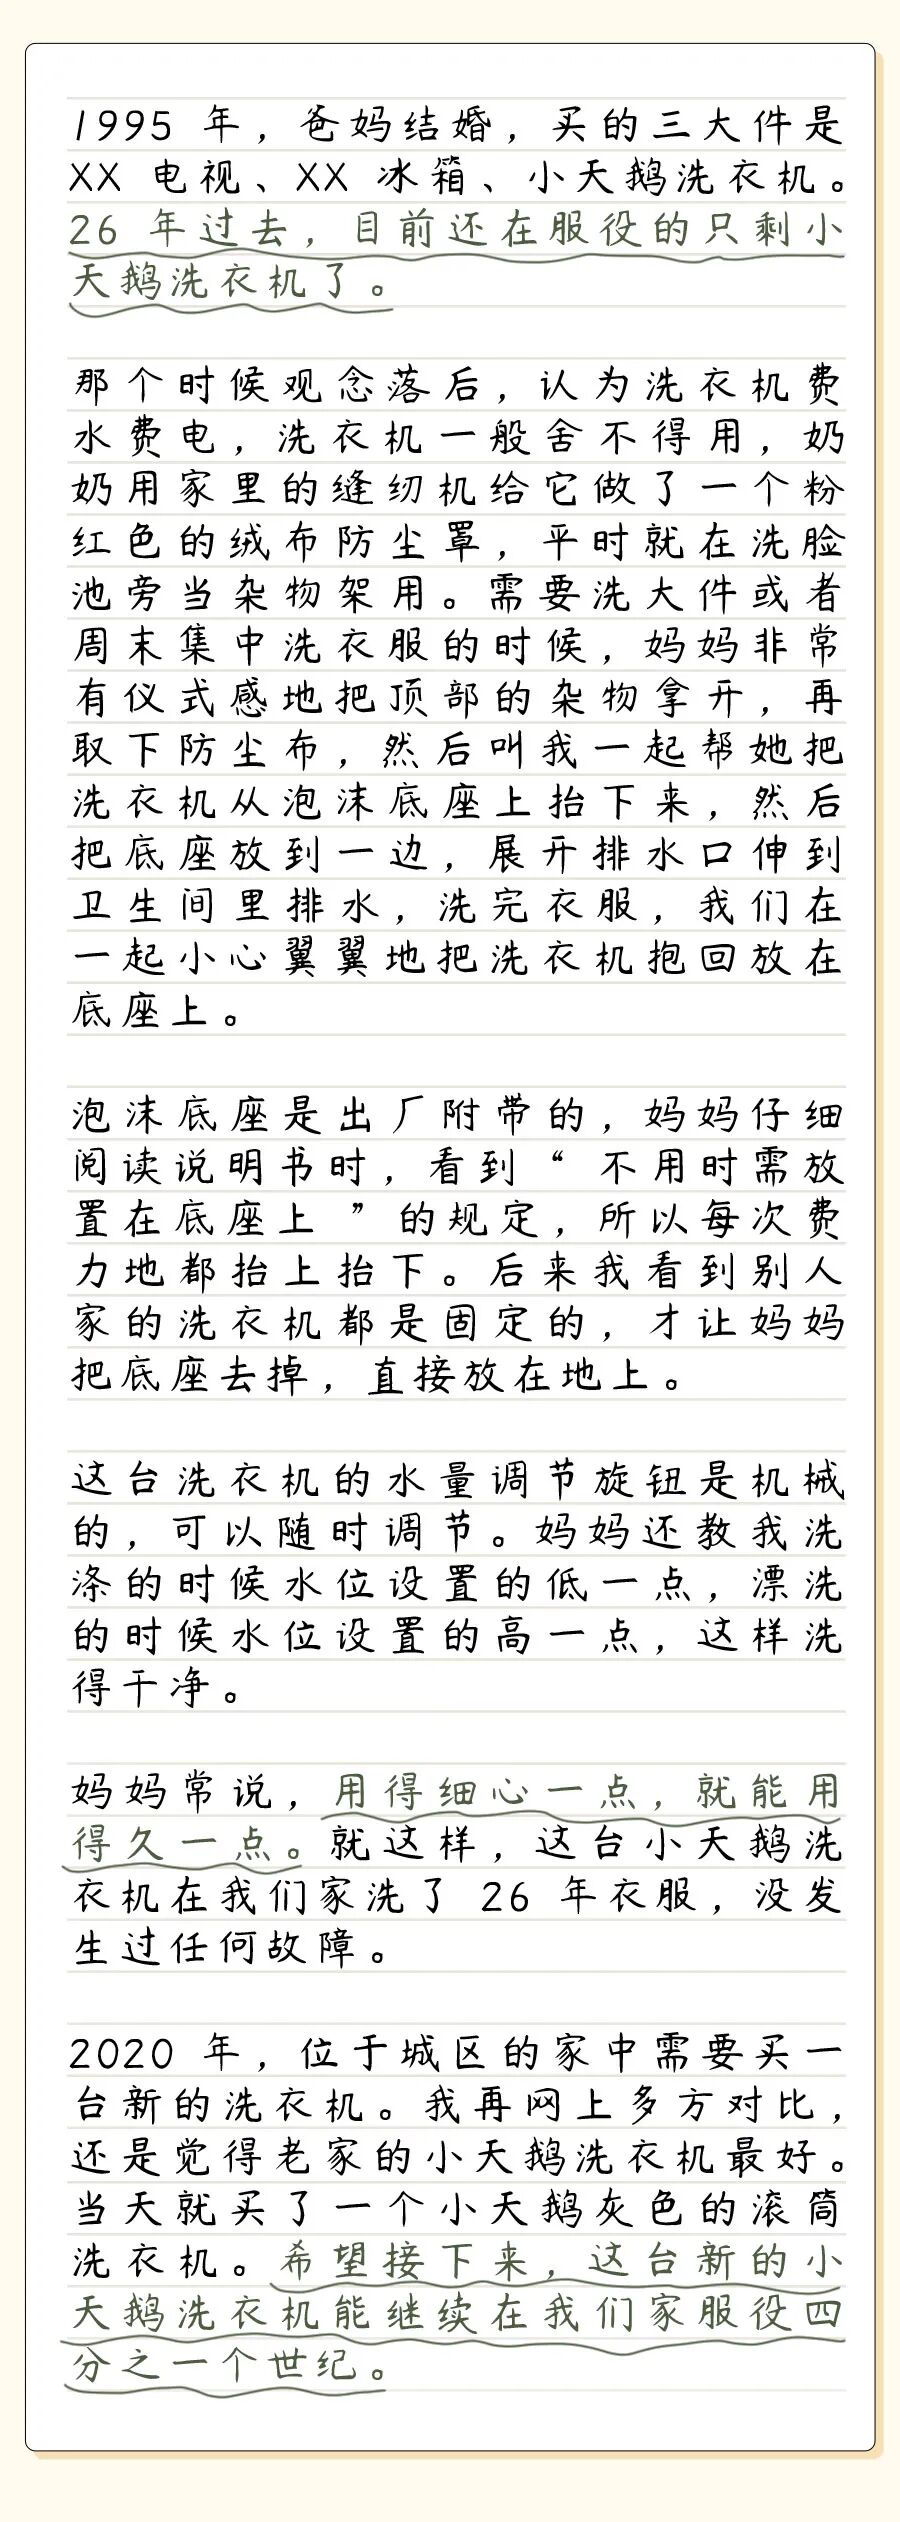 1995 年，爸妈结婚，买的三大件是
XX 电视、XX 冰箱、小天鹅洗衣机。
26 年过去，目前还在服役的只剩小
天鹅洗衣机了。
那个时候观念落后，认为洗衣机费
水费电，洗衣机一般舍不得用，奶
奶用家里的缝纫机给它做了一个粉
红色的绒布防尘罩，平时就在洗脸
池旁当杂物架用。需要洗大件或者
周末集中洗衣服的时候，妈妈非常
有仪式感地把顶部的杂物拿开，再
取下防尘布，然后叫我一起帮她把
洗衣机从泡沫底座上抬下来，然后
把底座放到一边，展开排水口伸到
卫生间里排水，洗完衣服，我们在
一起小心翼翼地把洗衣机抱回放在
底座上。
泡沫底座是出厂附带的，妈妈仔细
阅读说明书时，看到“ 不用时需放
置在底座上 ”的规定，所以每次费
力地都抬上抬下。后来我看到别人
家的洗衣机都是固定的，才让妈妈
把底座去掉，直接放在地上。
这台洗衣机的水量调节旋钮是机械
的，可以随时调节。妈妈还教我洗
涤的时候水位设置的低一点，漂洗
的时候水位设置的高一点，这样洗
得干净。
妈妈常说，用得细心一点，就能用
得久一点。就这样，这台小天鹅洗
衣机在我们家洗了 26 年衣服，没发
生过任何故障。
2020 年，位于城区的家中需要买一
台新的洗衣机。我再网上多方对比，
还是觉得老家的小天鹅洗衣机最好。
当天就买了一个小天鹅灰色的滚筒
洗衣机。希望接下来，这台新的小
天鹅洗衣机能继续在我们家服役四
分之一个世纪。